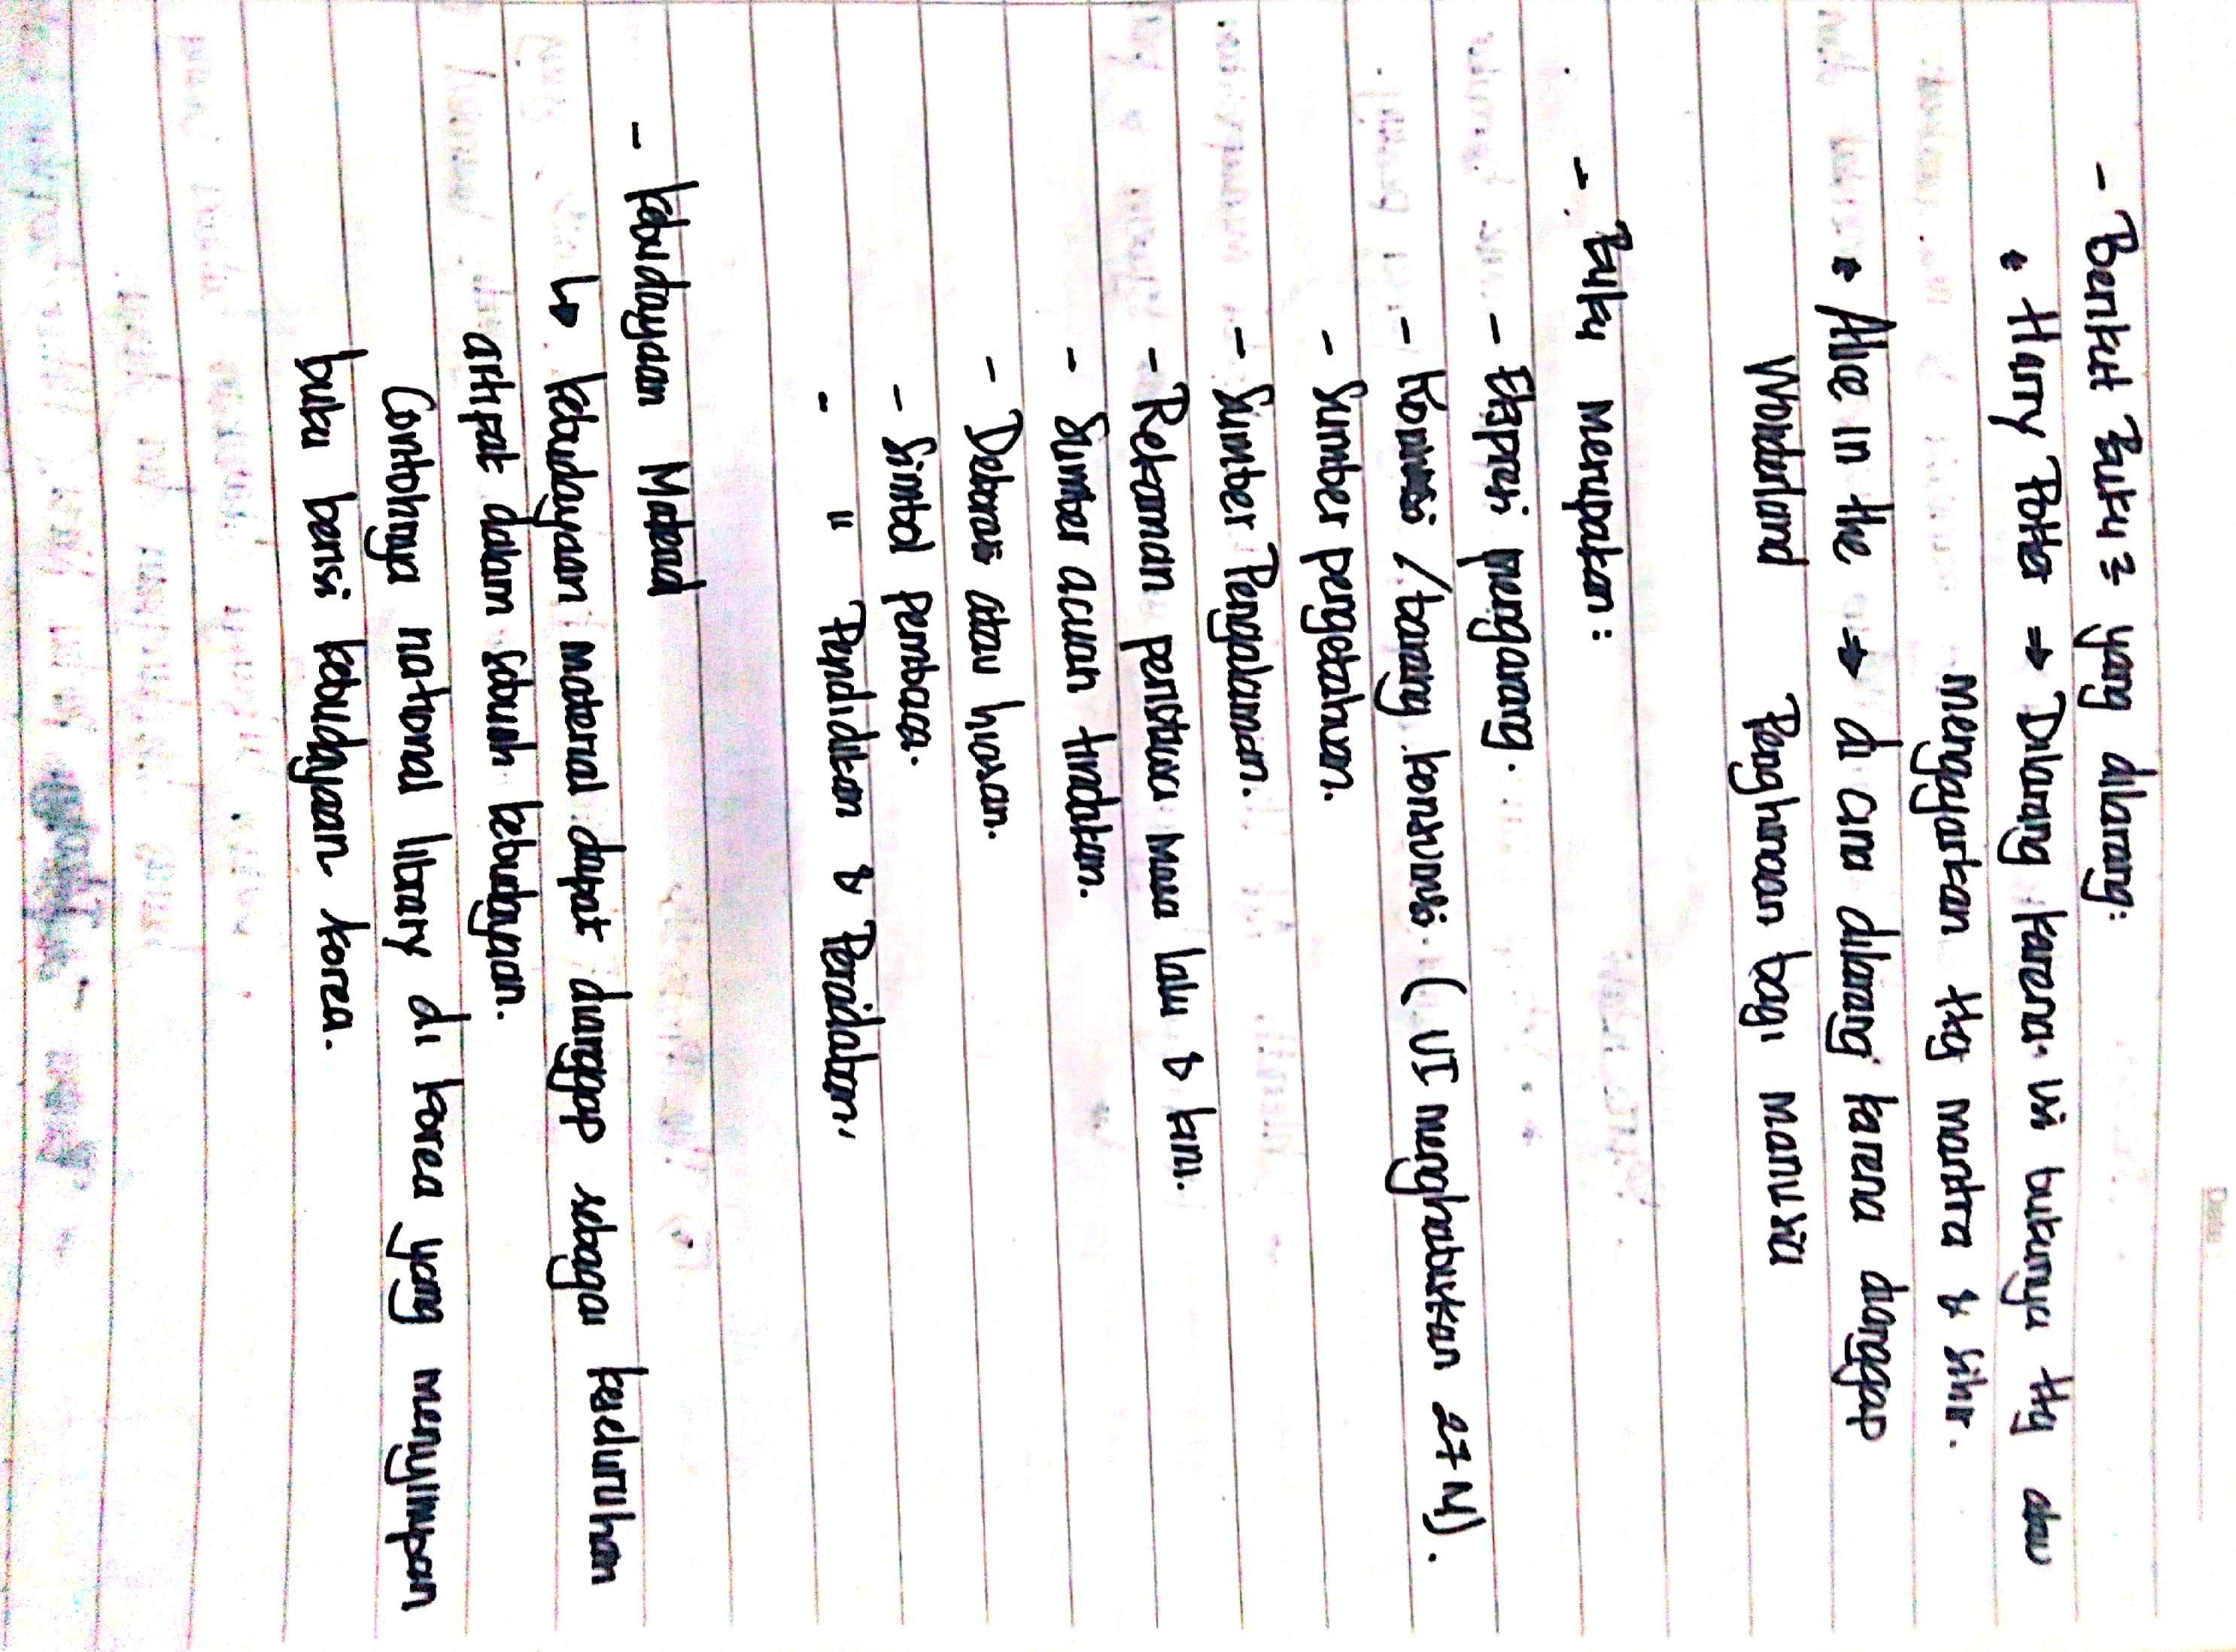 - Berikut Buku² yang dilarang:
• Harry Potter → Dilarang karena isi bukunya ttg atau
mengajarkan ttg mantra & sihir.
• Alice in the → di cina dilarang karena dianggap
Wonderland Penghinaan bagi manusia
- Buku merupakan:
- Ekspresi pengarang.
- Komoditi / barang konsumsi (UI menghabiskan 27 M).
- Sumber pengetahuan.
- Sumber Pengalaman.
- Rekaman peristiwa masa lalu & kini.
- Sumber acuan tindakan.
- Dekorasi atau hiasan.
- Simbol pembaca.
- " Pendidikan & Peradaban.
- Kebudayaan Material
↳ Kebudayaan material dapat dianggap sebagai keseluruhan
artifak dalam sebuah kebudayaan.
Contohnya national library di Korea yang menyimpan
buku berisi kebudayaan Korea.
Date: